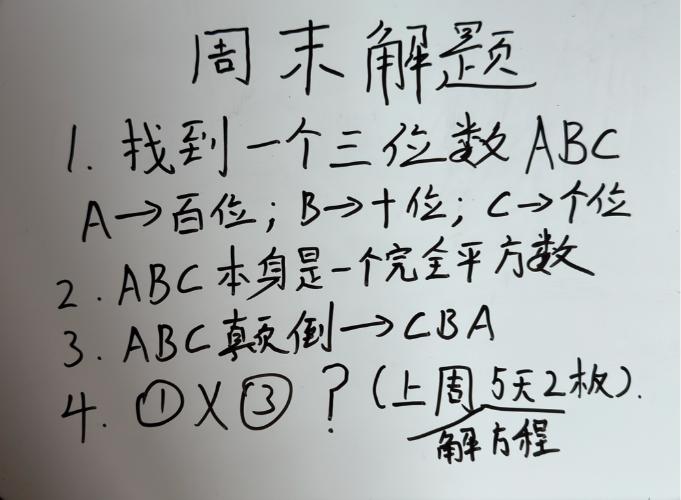 周末解题
1. 找到一个三位数 ABC
A→百位; B→十位; C→个位
2. ABC本身是一个完全平方数
3. ABC颠倒→CBA
4. ①X③ ? (上周5天2板).
解方程